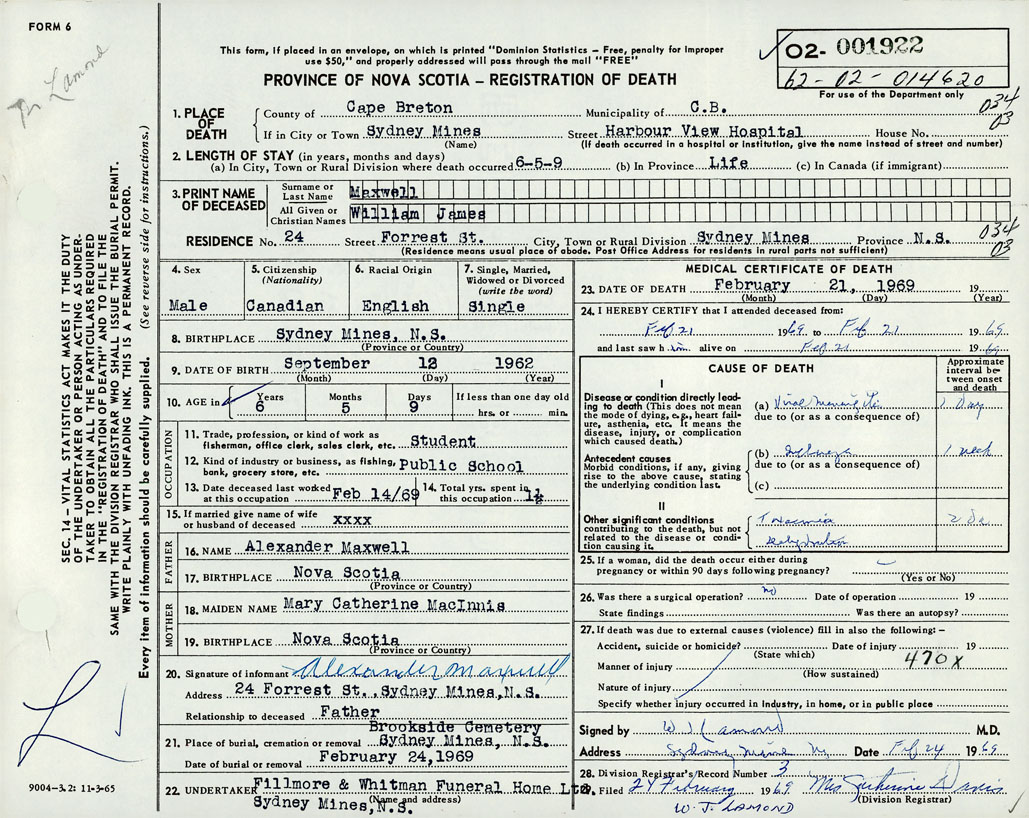 FORM 6
Dr Lamond
This form, if placed in an envelope, on which is printed "Dominion Statistics – Free, penalty for improper
use $50," and properly addressed will pass through the mail "FREE"
PROVINCE OF NOVA SCOTIA – REGISTRATION OF DEATH
02- 001922
62-02-014620
For use of the Department only
034
03
1. PLACE OF DEATH
County of Cape Breton Municipality of C.B.
If in City or Town Sydney Mines Street Harbour View Hospital House No.
(Name) (If death occurred in a hospital or institution, give the name instead of street and number)
2. LENGTH OF STAY (in years, months and days)
(a) In City, Town or Rural Division where death occurred 6-5-9 (b) In Province Life (c) In Canada (if immigrant)
3. PRINT NAME OF DECEASED
Surname or Last Name Maxwell
All Given or Christian Names William James
RESIDENCE No. 24 Street Forrest St. City, Town or Rural Division Sydney Mines Province N.S.
(Residence means usual place of abode. Post Office Address for residents in rural parts not sufficient)
034
03
4. Sex
Male
5. Citizenship
(Nationality)
Canadian
6. Racial Origin
English
7. Single, Married,
Widowed or Divorced
(write the word)
Single
8. BIRTHPLACE Sydney Mines, N.S.
(Province or Country)
9. DATE OF BIRTH September 12 1962
(Month) (Day) (Year)
10. AGE in Years Months Days If less than one day old
6 5 9 hrs. or min.
OCCUPATION
11. Trade, profession, or kind of work as
fisherman, office clerk, sales clerk, etc. Student
12. Kind of industry or business, as fishing,
bank, grocery store, etc. Public School
13. Date deceased last worked
at this occupation Feb 14/69
14. Total yrs. spent in
this occupation 1½
15. If married give name of wife
or husband of deceased xxxx
FATHER
16. NAME Alexander Maxwell
17. BIRTHPLACE Nova Scotia
(Province or Country)
MOTHER
18. MAIDEN NAME Mary Catherine MacInnis
19. BIRTHPLACE Nova Scotia
(Province or Country)
20. Signature of informant Alexander Maxwell
Address 24 Forrest St., Sydney Mines, N.S.
Relationship to deceased Father
Brookside Cemetery
21. Place of burial, cremation or removal Sydney Mines, N.S.
Date of burial or removal February 24, 1969
22. UNDERTAKER Fillmore & Whitman Funeral Home Ltd.
(Name and address)
Sydney Mines, N.S.
MEDICAL CERTIFICATE OF DEATH
23. DATE OF DEATH February 21, 1969 19
(Month) (Day) (Year)
24. I HEREBY CERTIFY that I attended deceased from:
Feb 21 1969 to Feb 21 1969
and last saw him alive on Feb 21 1969
CAUSE OF DEATH
Approximate
interval be-
tween onset
and death
I
Disease or condition directly lead-
ing to death (This does not mean
the mode of dying, e.g., heart fail-
ure, asthenia, etc. It means the
disease, injury, or complication
which caused death.)
(a) Viral Meningitis 1 Day
due to (or as a consequence of)
Antecedent causes
Morbid conditions, if any, giving
rise to the above cause, stating
the underlying condition last.
(b) 1 week
due to (or as a consequence of)
(c)
II
Other significant conditions
contributing to the death, but not
related to the disease or condi-
tion causing it.
2 Da
25. If a woman, did the death occur either during
pregnancy or within 90 days following pregnancy?
(Yes or No)
26. Was there a surgical operation? no Date of operation 19
State findings Was there an autopsy?
27. If death was due to external causes (violence) fill in also the following: –
Accident, suicide or homicide? Date of injury 19
(State which)
470 X
Manner of injury
(How sustained)
Nature of injury
Specify whether injury occurred in industry, in home, or in public place
Signed by W J Lamond M.D.
Address Sydney Mines Date Feb 24 1969
28. Division Registrar's Record Number 3
29. Filed 24 February 1969 Mrs Davis
(Division Registrar)
W. J. LAMOND
SEC. 14 – VITAL STATISTICS ACT MAKES IT THE DUTY
OF THE UNDERTAKER OR PERSON ACTING AS UNDER-
TAKER TO OBTAIN ALL THE PARTICULARS REQUIRED
IN THE "REGISTRATION OF DEATH" AND TO FILE THE
SAME WITH THE DIVISION REGISTRAR WHO SHALL ISSUE THE BURIAL PERMIT.
WRITE PLAINLY WITH UNFADING INK. THIS IS A PERMANENT RECORD.
Every item of information should be carefully supplied. (See reverse side for instructions.)
9004–3.2: 11-3-65